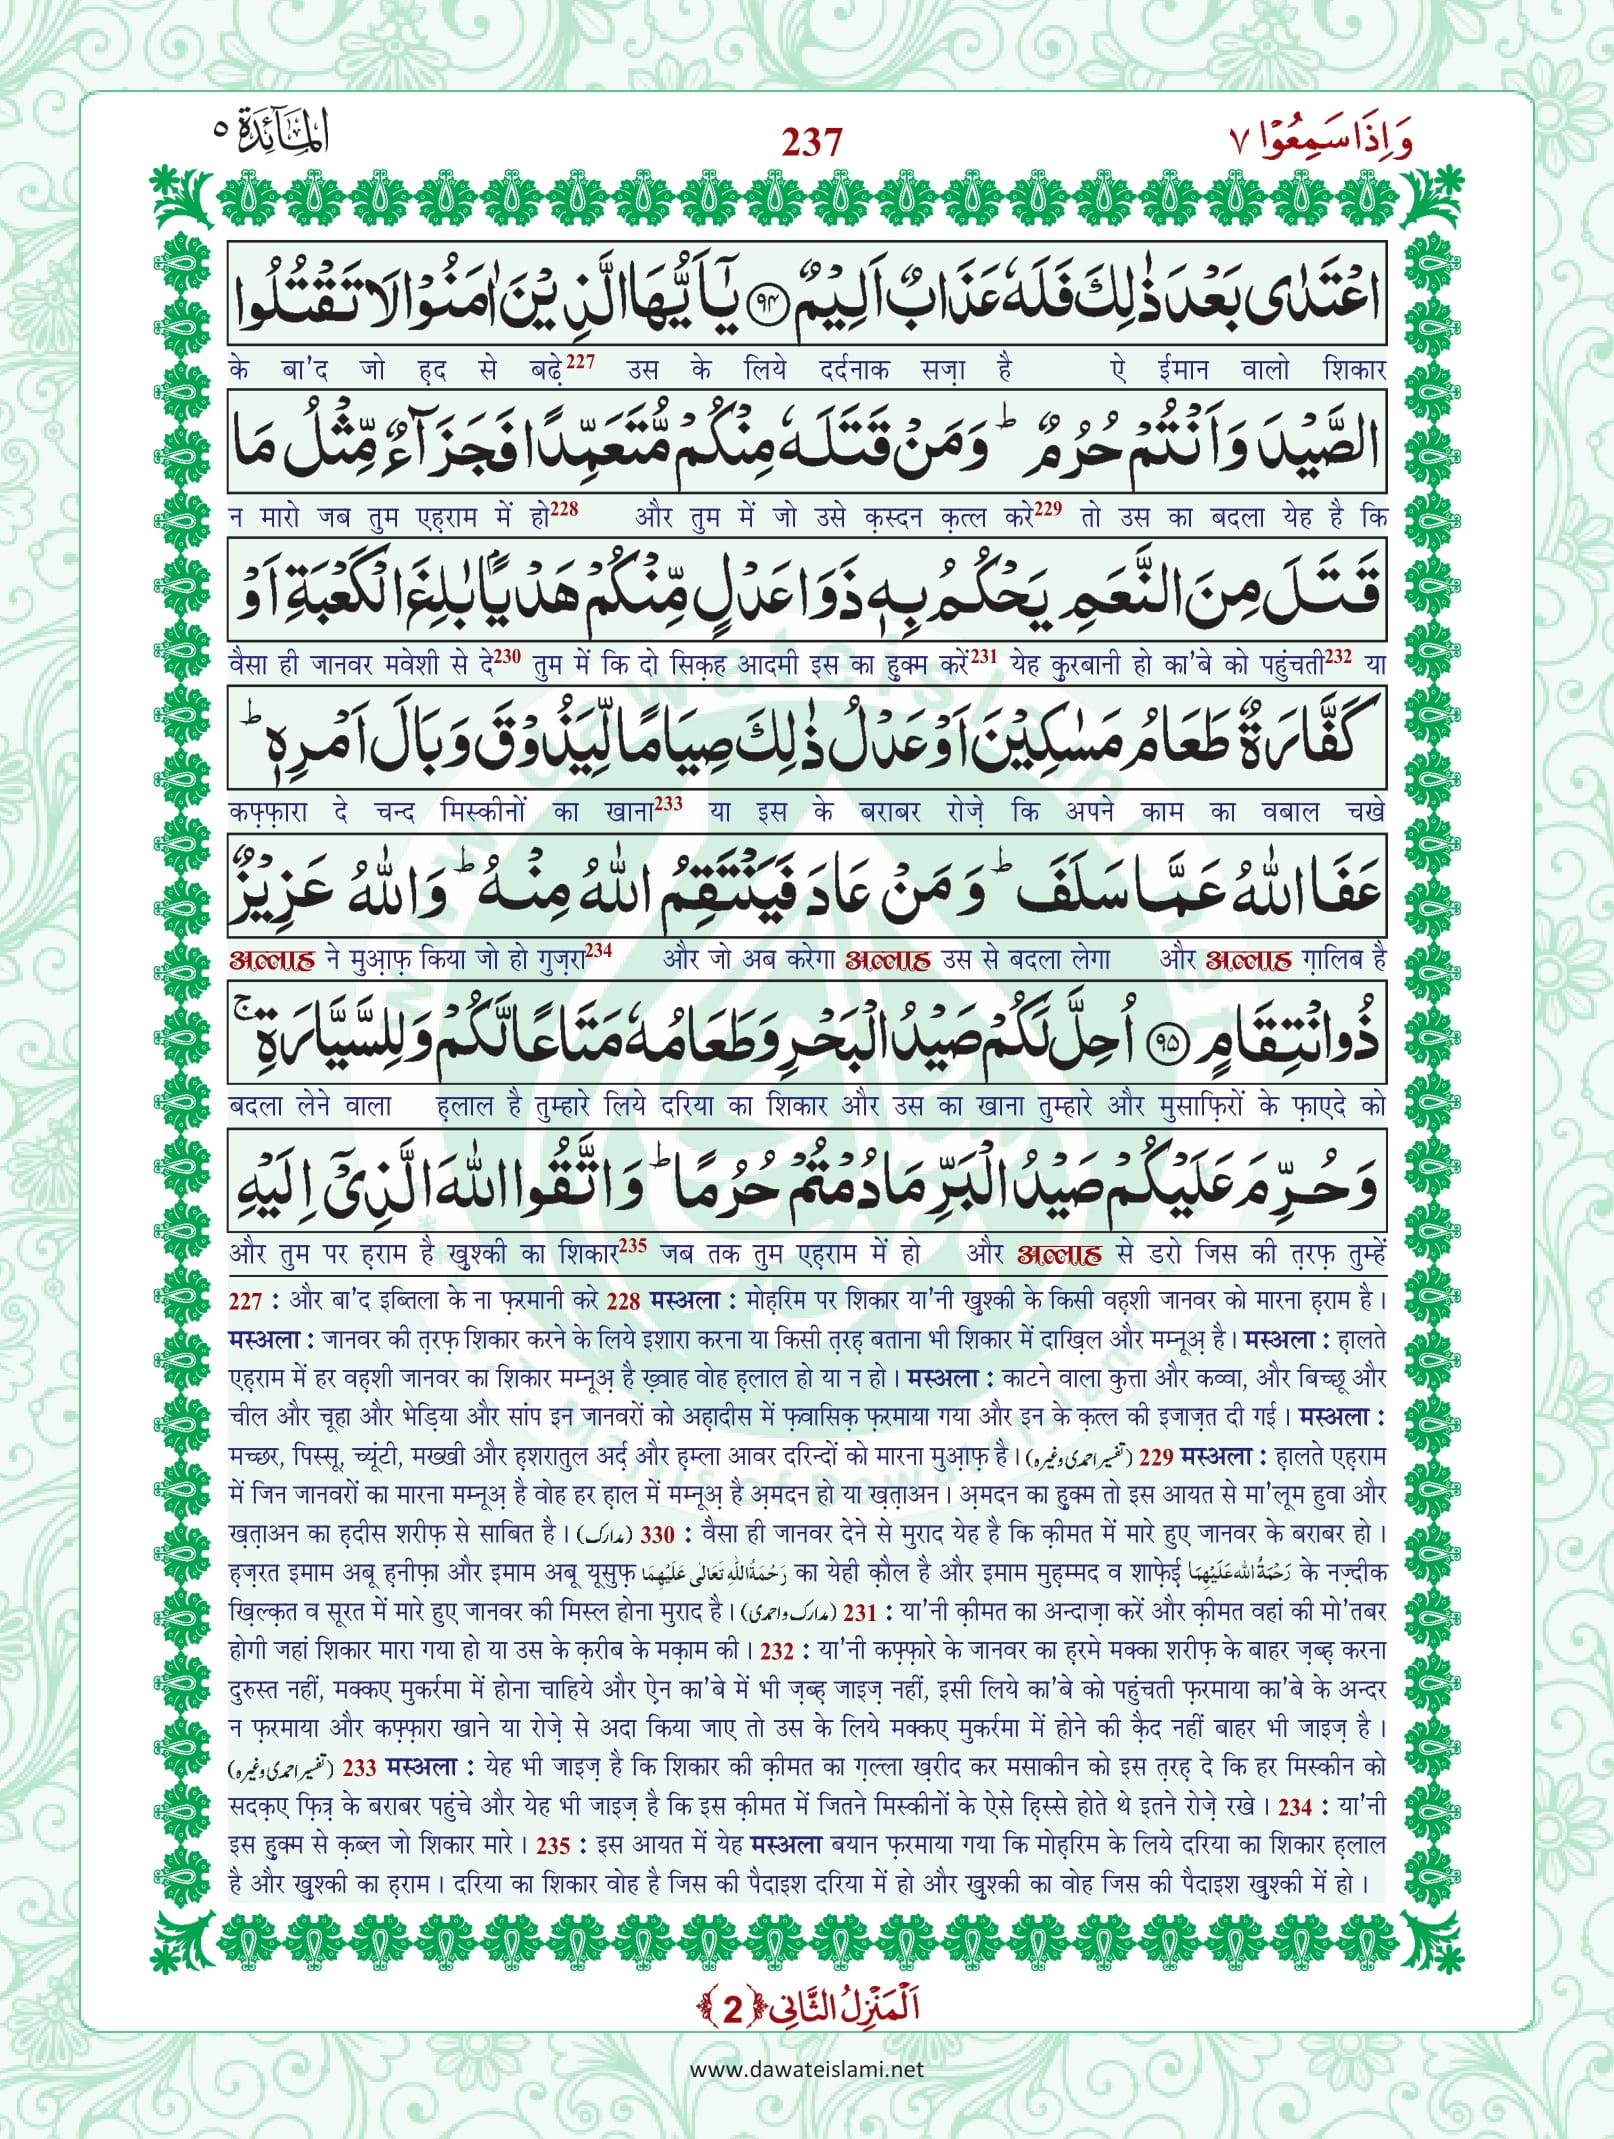 المآئدة ٥
237
وَاِذَا سَمِعُوْا ٧
اعْتَدٰى بَعْدَ ذٰلِكَ فَلَهٗ عَذَابٌ اَلِيْمٌ ﴿۹۴﴾ يٰۤاَيُّهَا الَّذِيْنَ اٰمَنُوْا لَا تَقْتُلُوا
के बा'द जो ह़द से बढ़े227 उस के लिये दर्दनाक सज़ा है ऐ ईमान वालो शिकार
الصَّيْدَ وَاَنْتُمْ حُرُمٌ ؕ وَمَنْ قَتَلَهٗ مِنْكُمْ مُّتَعَمِّدًا فَجَزَآءٌ مِّثْلُ مَا
न मारो जब तुम एह़राम में हो228 और तुम में जो उसे क़स्दन क़त्ल करे229 तो उस का बदला येह है कि
قَتَلَ مِنَ النَّعَمِ يَحْكُمُ بِهٖ ذَوَا عَدْلٍ مِّنْكُمْ هَدْيًۢا بٰلِغَ الْكَعْبَةِ اَوْ
वैसा ही जानवर मवेशी से दे230 तुम में कि दो सिक़ह आदमी इस का हुक्म करें231 येह कुरबानी हो का'बे को पहुंचती232 या
كَفَّارَةٌ طَعَامُ مَسٰكِيْنَ اَوْ عَدْلُ ذٰلِكَ صِيَامًا لِّيَذُوْقَ وَبَالَ اَمْرِهٖ ؕ
कफ़्फ़ारा दे चन्द मिस्कीनों का खाना233 या इस के बराबर रोज़े कि अपने काम का वबाल चखे
عَفَا اللّٰهُ عَمَّا سَلَفَ ؕ وَمَنْ عَادَ فَيَنْتَقِمُ اللّٰهُ مِنْهُ ؕ وَاللّٰهُ عَزِيْزٌ
अल्लाह ने मुआ़फ़ किया जो हो गुज़रा234 और जो अब करेगा अल्लाह उस से बदला लेगा और अल्लाह ग़ालिब है
ذُو انْتِقَامٍ ﴿۹۵﴾ اُحِلَّ لَكُمْ صَيْدُ الْبَحْرِ وَطَعَامُهٗ مَتَاعًا لَّكُمْ وَلِلسَّيَّارَةِ ۚ
बदला लेने वाला ह़लाल है तुम्हारे लिये दरिया का शिकार और उस का खाना तुम्हारे और मुसाफ़िरों के फ़ाएदे को
وَحُرِّمَ عَلَيْكُمْ صَيْدُ الْبَرِّ مَا دُمْتُمْ حُرُمًا ؕ وَاتَّقُوا اللّٰهَ الَّذِيْۤ اِلَيْهِ
और तुम पर ह़राम है खुश्की का शिकार235 जब तक तुम एह़राम में हो और अल्लाह से डरो जिस की त़रफ़ तुम्हें
227 : और बा'द इब्तिला के ना फ़रमानी करे 228 मस्अला : मोह़रिम पर शिकार या'नी खुश्की के किसी वह़शी जानवर को मारना ह़राम है।
मस्अला : जानवर की त़रफ़ शिकार करने के लिये इशारा करना या किसी त़रह़ बताना भी शिकार में दाख़िल और मम्नूअ़ है। मस्अला : ह़ालते
एह़राम में हर वह़शी जानवर का शिकार मम्नूअ़ है ख़्वाह वोह ह़लाल हो या न हो। मस्अला : काटने वाला कुत्ता और कव्वा, और बिच्छू और
चील और चूहा और भेड़िया और सांप इन जानवरों को अह़ादीस में फ़वासिक़ फ़रमाया गया और इन के क़त्ल की इजाज़त दी गई। मस्अला :
मच्छर, पिस्सू, च्यूंटी, मख्खी और ह़शरातुल अर्द़ और ह़म्ला आवर दरिन्दों को मारना मुआ़फ़ है। (تفسیر احمدی وغیرہ) 229 मस्अला : ह़ालते एह़राम
में जिन जानवरों का मारना मम्नूअ़ है वोह हर ह़ाल में मम्नूअ़ है अ़मदन हो या ख़त़ाअन। अ़मदन का हुक्म तो इस आयत से मा'लूम हुवा और
ख़त़ाअन का ह़दीस शरीफ़ से साबित है। (مدارک) 330 : वैसा ही जानवर देने से मुराद येह है कि क़ीमत में मारे हुए जानवर के बराबर हो।
ह़ज़रत इमाम अबू ह़नीफ़ा और इमाम अबू यूसुफ़ رَحْمَةُ اللّٰهِ تَعَالٰى عَلَيْهِمَا का येही क़ौल है और इमाम मुह़म्मद व शाफ़ेई رَحْمَةُ اللّٰه عَلَيْهِمَا के नज़्दीक
ख़िल्क़त व सूरत में मारे हुए जानवर की मिस्ल होना मुराद है। (مدارک و احمدی) 231 : या'नी क़ीमत का अन्दाज़ा करें और क़ीमत वहां की मो'तबर
होगी जहां शिकार मारा गया हो या उस के क़रीब के मक़ाम की। 232 : या'नी कफ़्फ़ारे के जानवर का ह़रमे मक्का शरीफ़ के बाहर ज़ब्ह़ करना
दुरुस्त नहीं, मक्कए मुकर्रमा में होना चाहिये और ऐन का'बे में भी ज़ब्ह़ जाइज़ नहीं, इसी लिये का'बे को पहुंचती फ़रमाया का'बे के अन्दर
न फ़रमाया और कफ़्फ़ारा खाने या रोज़े से अदा किया जाए तो उस के लिये मक्कए मुकर्रमा में होने की क़ैद नहीं बाहर भी जाइज़ है।
(تفسیر احمدی وغیرہ) 233 मस्अला : येह भी जाइज़ है कि शिकार की क़ीमत का ग़ल्ला ख़रीद कर मसाकीन को इस त़रह़ दे कि हर मिस्कीन को
सदक़ए फ़ित्र के बराबर पहुंचे और येह भी जाइज़ है कि इस क़ीमत में जितने मिस्कीनों के ऐसे हि़स्से होते थे इतने रोज़े रखे। 234 : या'नी
इस हुक्म से क़ब्ल जो शिकार मारे। 235 : इस आयत में येह मस्अला बयान फ़रमाया गया कि मोह़रिम के लिये दरिया का शिकार ह़लाल
है और खुश्की का ह़राम। दरिया का शिकार वोह है जिस की पैदाइश दरिया में हो और खुश्की का वोह जिस की पैदाइश खुश्की में हो।
اَلْمَنْزِلُ الثَّانِي ﴿2﴾
www.dawateislami.net